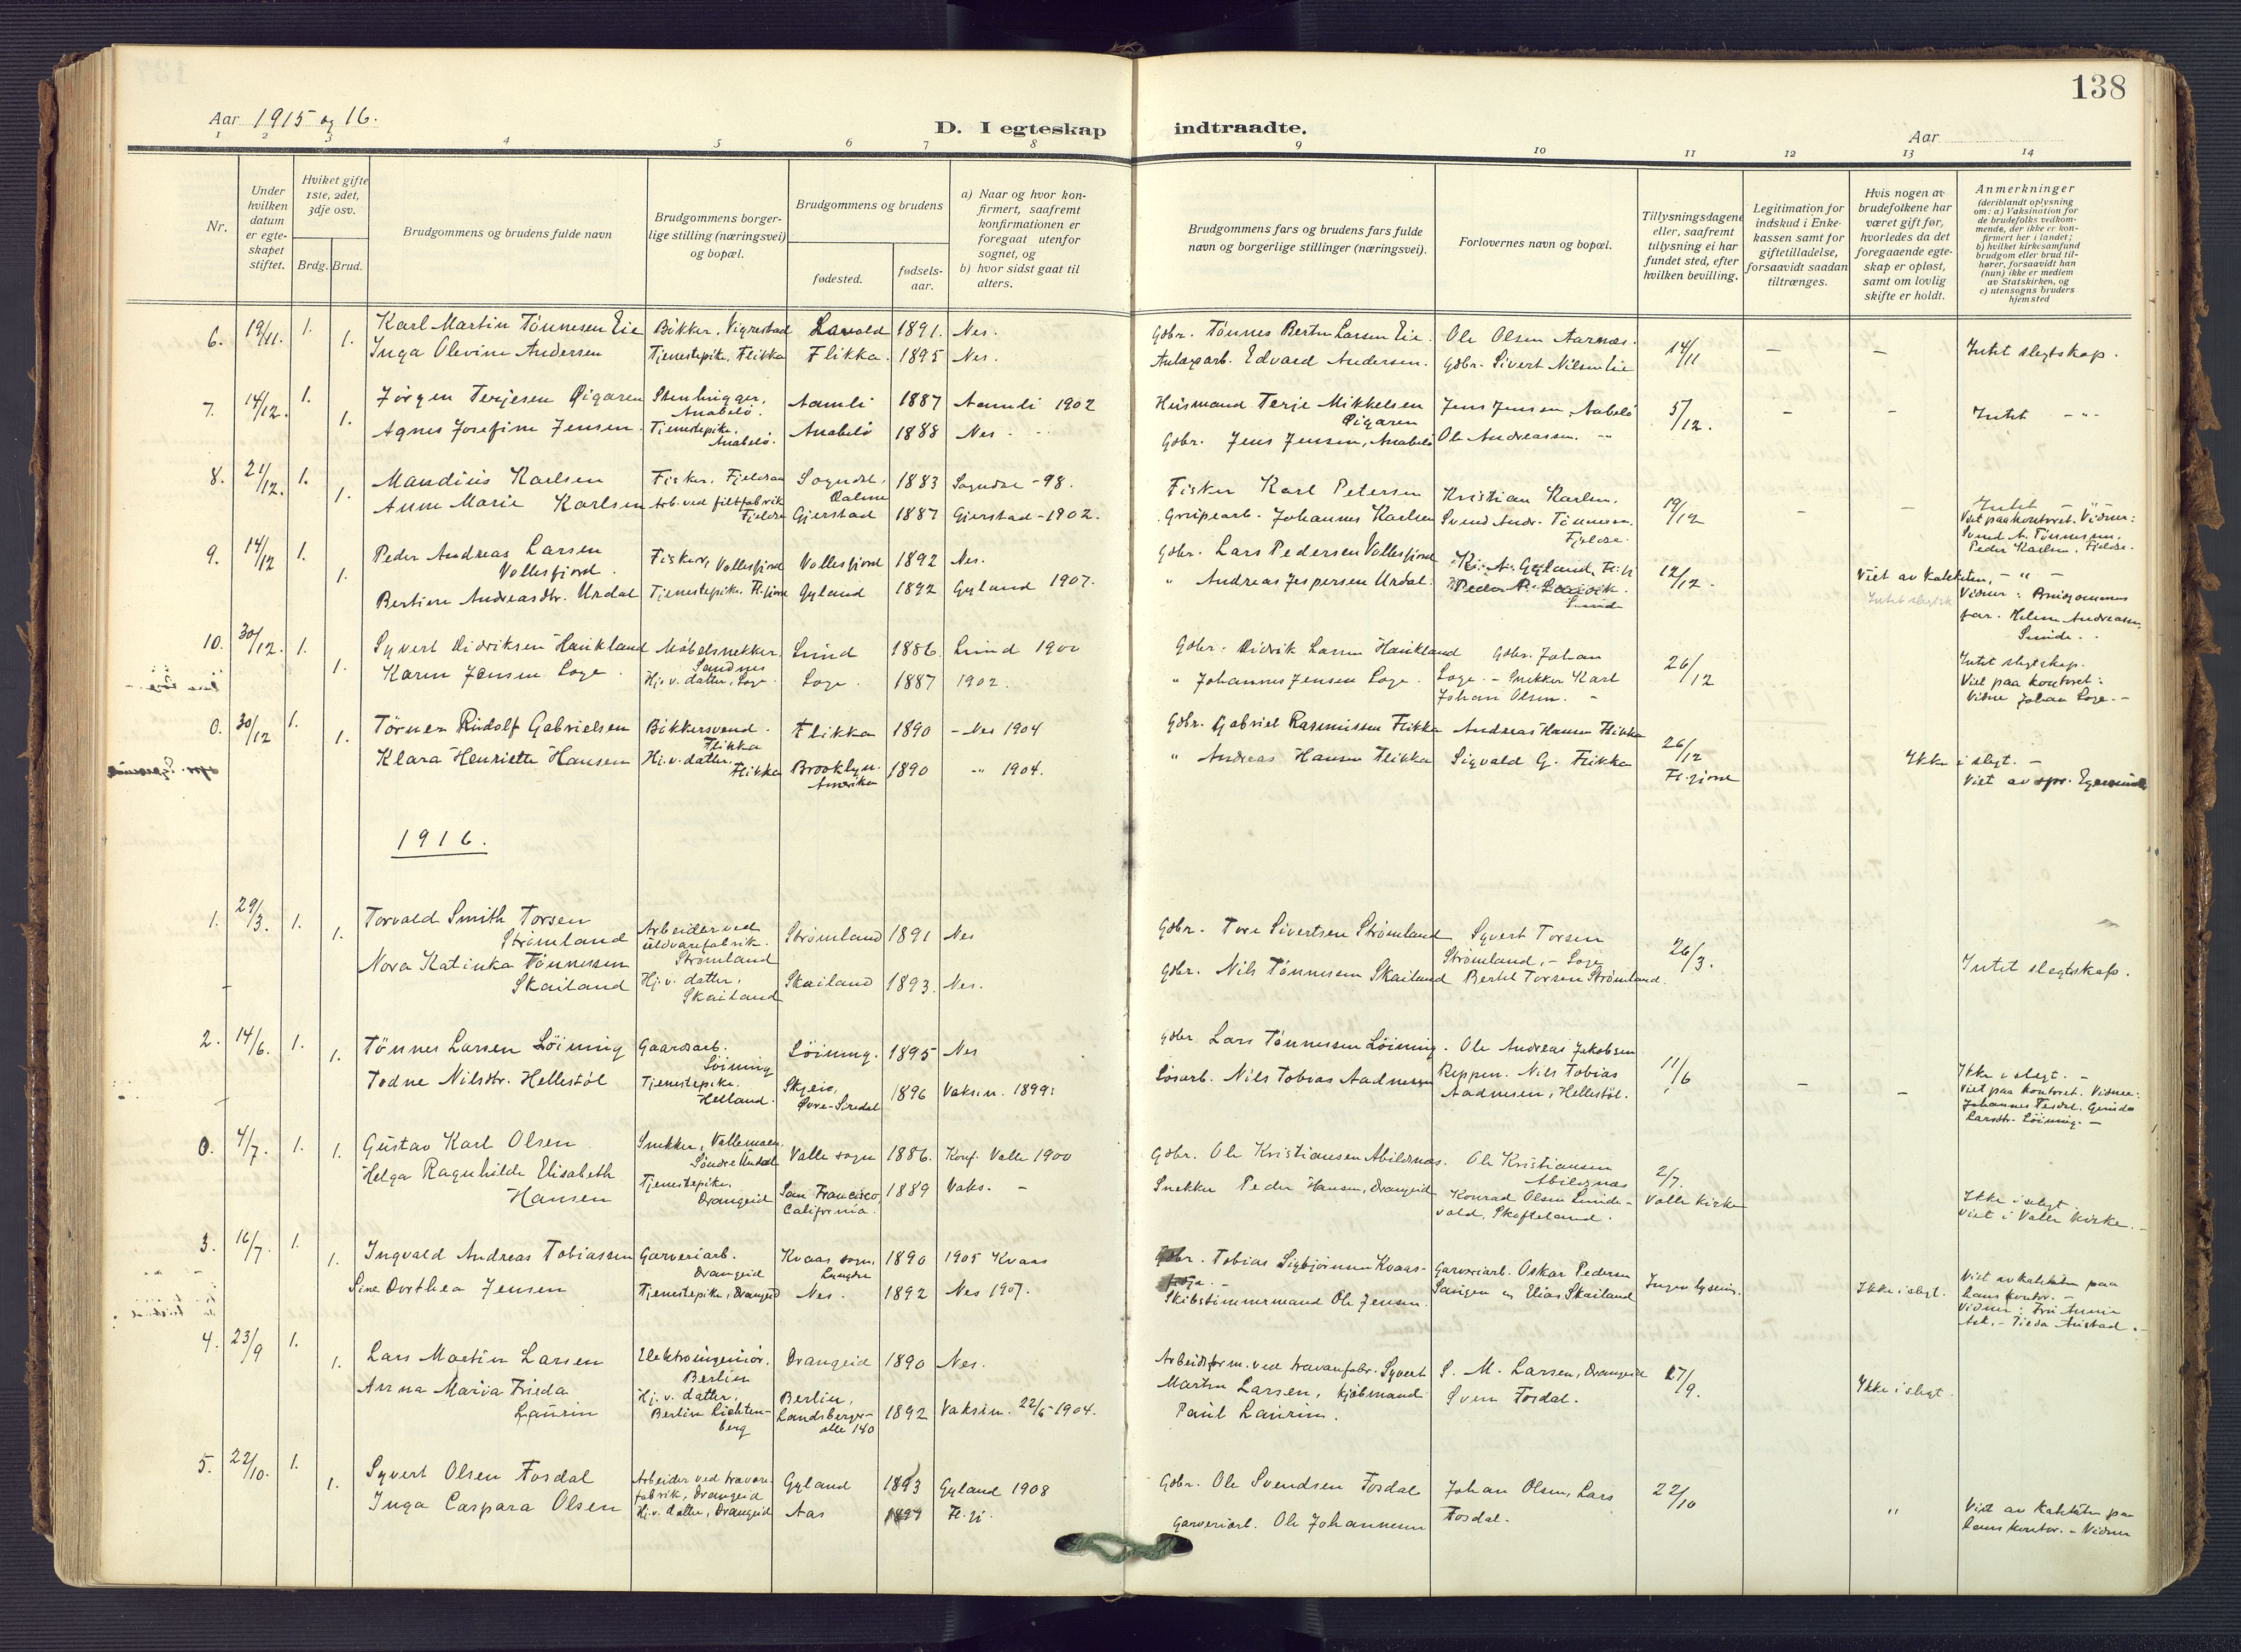 138
Aar 1915 og 16.
D. I egteskap indtraadte.
Aar
1 2 3 4 5 6 7 8 9 10 11 12 13 14
Nr.
Under hvilken datum er egteskapet stiftet.
Hviket gifte 1ste, 2det, 3dje osv.
Brdg. Brud.
Brudgommens og brudens fulde navn
Brudgommens borgerlige stilling (næringsvei) og bopæl.
Brudgommens og brudens
fødested.
fødselsaar.
a) Naar og hvor konfirmert, saafremt konfirmationen er foregaat utenfor sognet, og
b) hvor sidst gaat til alters.
Brudgommens fars og brudens fars fulde navn og borgerlige stillinger (næringsvei).
Forlovernes navn og bopæl.
Tillysningsdagene eller, saafremt tillysning ei har fundet sted, efter hvilken bevilling.
Legitimation for indskud i Enkekassen samt for giftetilladelse, forsaavidt saadan tiltrænges.
Hvis nogen av brudefolkene har været gift før, hvorledes da det foregaaende egteskap er opløst, samt om lovlig skifte er holdt.
Anmerkninger
(deriblandt oplysning om: a) Vaksination for de brudefolks vedkommende, der ikke er konfirmert her i landet; b) hvilket kirkesamfund brudgom eller brud tilhører, forsaavidt han (hun) ikke er medlem av Statskirken, og c) utensogns bruders hjemsted
6. 19/11. 1. Karl Martin Tönnesen Eie Bökker, Vigrestad 1891. Nes. Gdbr. Tönnes Bertin Larsen Eie. Ole Olsen Aarnæs. 14/11 – – Intet slegtskap.
1. Inga Olevine Andersen Tjenestepike, Flikka Flikka. 1895 Nes. Anlægsarb. Edvard Andersen. Gdbr. Sivert Nilsen Eie
7. 14/12. 1. Jörgen Terjesen Öigaren Stenhugger, Anabelö. Aamli 1887 Aamli 1902 Husmand Terje Mikkelsen Öigaren Jens Jensen, Aabelö 5/12. – – Intet – " –
1. Agnes Josefine Jensen. Tjenestepike. Anabelö. Anabelö 1888 Nes. Gdbr. Jens Jensen, Anabelö Ole Andreassen. – " –
8. 21/12. 1. Mandius Karlsen Fisker, Sogndal, Dalene 1883 Sogndal -98. Fisker Karl Petersen Kristian Karlsen. 19/12 – – Intet – " –
1. Anne Marie Karlsen Arb. ved filtfabrik Fjeldse Gjerstad 1887 Gjerstad -1902. Johannes Karlsen Svend Andr. Tönnesen. Fjeldse. Viet paa kontoret. Vidner: Svend A. Tönnesen, Peder Karlsen, Fjeldse.
9. 14/12 1. Peder Andreas Larsen Vollesfjord. Fisker, Vollesfjord Vollesfjord 1892 Nes. Gdbr. Lars Pedersen Vollesfjord 12/12. Viet av Kateketen, – " –
1. Bertine Andreasdtr. Urdal Tjenestepike, Fl.fjord Gyland 1892 Gyland 1907. " Andreas Jespersen Urdal. Vidner: Brudgommens far. Helene Andreassen, Sunde.
10. 30/12. 1. Syvert Didriksen Haukland Møbelsnekker, Sandnes Lund 1886. Lund 1900 Gdbr. Didrik Larsen Haukland Gdbr. Johan Loge. – Snekker Karl Johan Olsen. – 26/12 Intet slegtskap.
1. Karen Jensen Loge. Hj. v. datter, Loge. Loge. 1887 1902. " Johannes Jensen Loge. Viet paa kontoret: Vidne Johan Loge. –
0. 30/12 1. Törnes Rudolf Gabrielsen Bökkersvend. Flikka Flikka 1890 – Nes 1904 Gdbr. Gabriel Rasmussen Flikka Andreas Hansen Flikka 26/12 Fl.fjord Ikke i slegt. –
1. Klara Henriette Hansen Hj. v. datter. Flikka Brooklyn. Amerika 1890 – " 1904. " Andreas Hansen Flikka Sigvald G. Flikka Viet av spr. Egenæs
1916.
1. 29/3. 1. Torvald Smith Torsen Strömland Arbeider ved uldvarefabrik. Strömland Strömland 1891 Nes Gdbr. Tore Sivertsen Strömland Syvert Torsen Strömland, – Loge 26/3. Intet slegtskap.
1. Nora Katinka Tönnesen Skailand Hj. v. datter, Skailand Skailand 1893. Nes. Gdbr. Nils Tönnesen Skailand Bertel Torsen Strömland.
2. 14/6. 1. Tönnes Larsen Löining Gaardsarb. Löining Löining. 1895 Nes Gdbr. Lars Tönnessen Löining. Ole Andreas Jakobsen 11/6 – – Ikke i slegt. –
1. Todne Nilsdtr. Hellestöl Tjenestepike. Helland. Övre-Siredal 1896 Vaksin. 1899: Lösarb. Nils Tobias Aadnesen Nils Tobias Aadnesen, Hellestöl. Viet paa kontoret. Vidner: Larsdtr. Löining. –
0. 4/7. 1. Gustav Karl Olsen Snekker, Vallemoen, Söndre Undal Valle sogn 1886. Konf. Valle 1900 Gdbr. Ole Kristiansen Abildsnæs. Ole Kristiansen Abildsnæs 2/7. Valle kirke
1. Helga Ragnhilde Elisabeth Hansen Tjenestepike. Drangeid San Francisco, California. 1889 Vaks. – Snekker Peder Hansen, Drangeid Konrad Olsen Lundevold, Skofteland. Ikke i slegt. Viet i Valle kirke. –
3. 16/7. 1. Ingvald Andreas Tobiassen Garveriarb. Drangeid Kvaas sogn, Lyngdal 1890 1905 Kvaas Gdbr. Tobias Sigbjörnsen Kvaas Garveriarb. Oskar Pedersen Ingen lysning. Ikke i slegt. Viet av kateketen paa hans kontor. –
1. Sine Dorthea Jensen Tjenestepike, Drangeid Nes. 1892 Nes 1907. Skibstimmermand Ole Jensen. og Elias Skailand Vidner: Fru Anna Ask. – Austad. –
4. 23/9 1. Lars Martin Larsen Elektroingeniör, Berlin Drangeid 1890 Nes. Arbeidsform. ved travarefabr. Syvert Martin Larsen, S. M. Larsen, Drangeid 17/9. Ikke i slegt.
1. Anna Maria Frieda Laurin Hj. v. datter, Berlin Lichtenberg Berlin, Landsberger-alle 140 1892 Vaksin. 22/6-1904. kjöbmand Paul Laurin. Sven Fosdal.
5. 22/10. 1. Syvert Olsen Fosdal Arbeider ved travarefabrik, Drangeid Gyland 1893 Gyland 1908 Gdbr. Ole Svendsen Fosdal Johan Olsen, Lars Fosdal. 22/10 " Viet av kateketen paa hans kontor. – Vidner
1. Inga Caspara Olsen Hj. v. datter, Drangeid Aas Fl.fj. Garveriarb. Ole Johannesen